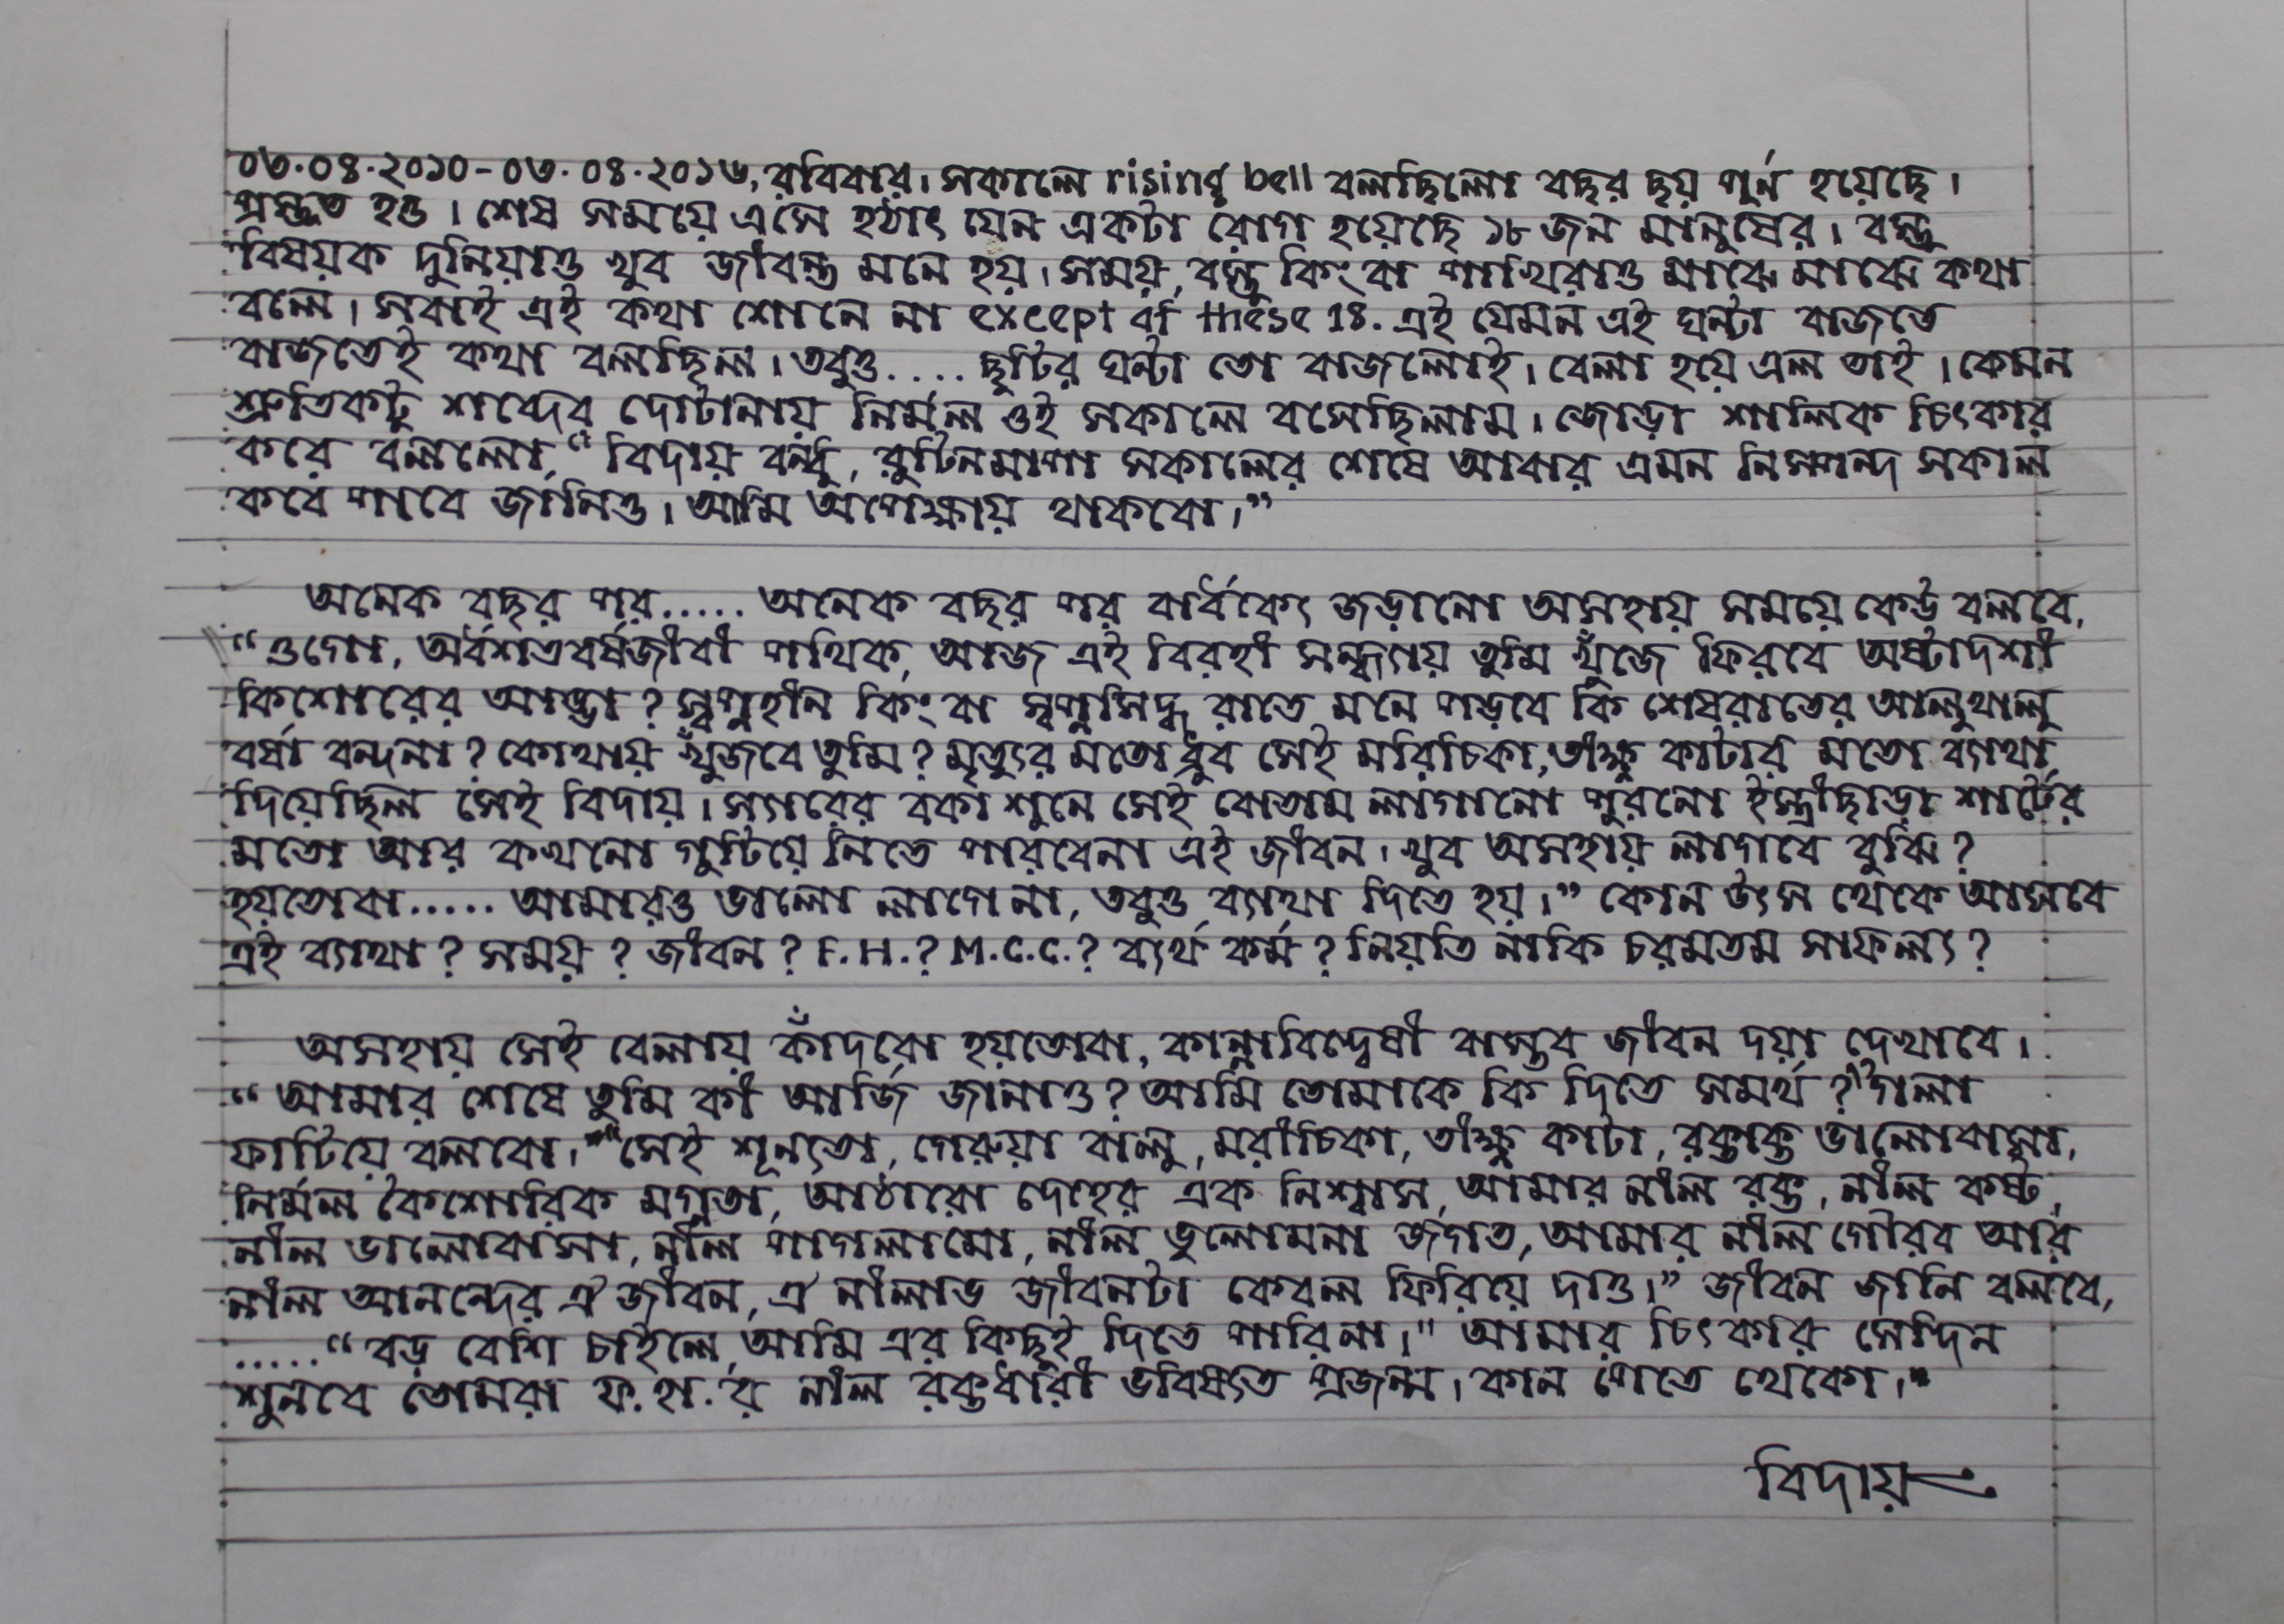 ০৩.০৪.২০১০-০৩.০৪.২০১৬, রবিবার। সকালে rising bell বলছিলো বছর ছয় পূর্ন হয়েছে।
প্রস্তুত হও। শেষ সময়ে এসে হঠাৎ যেন একটা রোগ হয়েছে ১৮ জন মানুষের। বস্তু
বিষয়ক দুনিয়াও খুব জীবন্ত মনে হয়। সময়, বস্তু কিংবা পাখিরাও মাঝে মাঝে কথা
বলে। সবাই এই কথা শোনে না except of these 18. এই যেমন এই ঘন্টা বাজতে
বাজতেই কথা বলছিল। তবুও..... ছুটির ঘন্টা তো বাজলোই। বেলা হয়ে এল তাই। কেমন
শ্রুতিকটু শব্দের দোটানায় নির্মল ওই সকালে বসেছিলাম। জোড়া শালিক চিৎকার
করে বললো, “বিদায় বন্ধু, রুটিনমাপা সকালের শেষে আবার এমন নিস্পন্দ সকাল
কবে পাবে জানিও। আমি অপেক্ষায় থাকবো।”
অনেক বছর পর..... অনেক বছর পর বার্ধক্যে জড়ানো অসহায় সময়ে কেউ বলবে,
“ওগো, অর্ধশতবর্ষজীবী পথিক, আজ এই বিরহী সন্ধ্যায় তুমি খুঁজে ফিরবে অষ্টাদশী
কিশোরের আড্ডা? স্বপ্নহীন কিংবা স্বপ্নসিদ্ধ রাতে মনে পড়বে কি শেষরাতের আলুথালু
বর্ষা বন্দনা? কোথায় খুঁজবে তুমি? মৃত্যুর মতো ধ্রুব সেই মরিচিকা, তীক্ষ্ণ কাটার মতো ব্যাথা
দিয়েছিল সেই বিদায়। স্যারের বকা শুনে সেই বোতাম লাগানো পুরনো ইস্ত্রীছাড়া শার্টের
মতো আর কখনো গুটিয়ে নিতে পারবেনা এই জীবন। খুব অসহায় লাগবে বুঝি?
হয়তোবা..... আমারও ভালো লাগেনা, তবুও ব্যাথা দিতে হয়।” কোন উৎস থেকে আসবে
এই ব্যাথা? সময়? জীবন? F.H.? M.C.C.? ব্যর্থ কর্ম? নিয়তি নাকি চরমতম সাফল্য?
অসহায় সেই বেলায় কাঁদবো হয়তোবা, কান্নাবিদ্বেষী বাস্তব জীবন দয়া দেখাবে।
“আমার শেষে তুমি কী আর্জি জানাও? আমি তোমাকে কি দিতে সমর্থ?” গলা
ফাটিয়ে বলবো। “সেই শূন্যতা, গেরুয়া বালু, মরীচিকা, তীক্ষ্ণ কাটা, রক্তাক্ত ভালোবাসা,
নির্মল কৈশোরিক মগ্নতা, আঠারো দেহের এক নিশ্বাস, আমার নীল রক্ত, নীল কষ্ট,
নীল ভালোবাসা, নীল পাগলামো, নীল ভুলোমনা জগত, আমার নীল গৌরব আর
নীল আনন্দের ঐ জীবন, ঐ নীলাভ জীবনটা কেবল ফিরিয়ে দাও।” জীবন জানি বলবে,
.....“বড় বেশি চাইলে, আমি এর কিছুই দিতে পারিনা।" আমার চিৎকার সেদিন
শুনবে তোমরা ফ.হা.'র নীল রক্তধারী ভবিষ্যত প্রজন্ম। কান পেতে থেকো।"
বিদায়